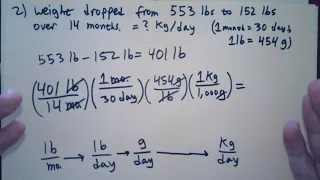 2) Weight dropped from 553 lbs to 152 lbs
over 14 months. = ? Kg/day (1 month = 30 days
1 lb = 454 g)
553 lb - 152 lb = 401 lb
(401 lb / 14 mo.) (1 mo. / 30 day) (454 g / lb) (1 Kg / 1,000 g) =
lb / mo → lb / day → g / day → Kg / day